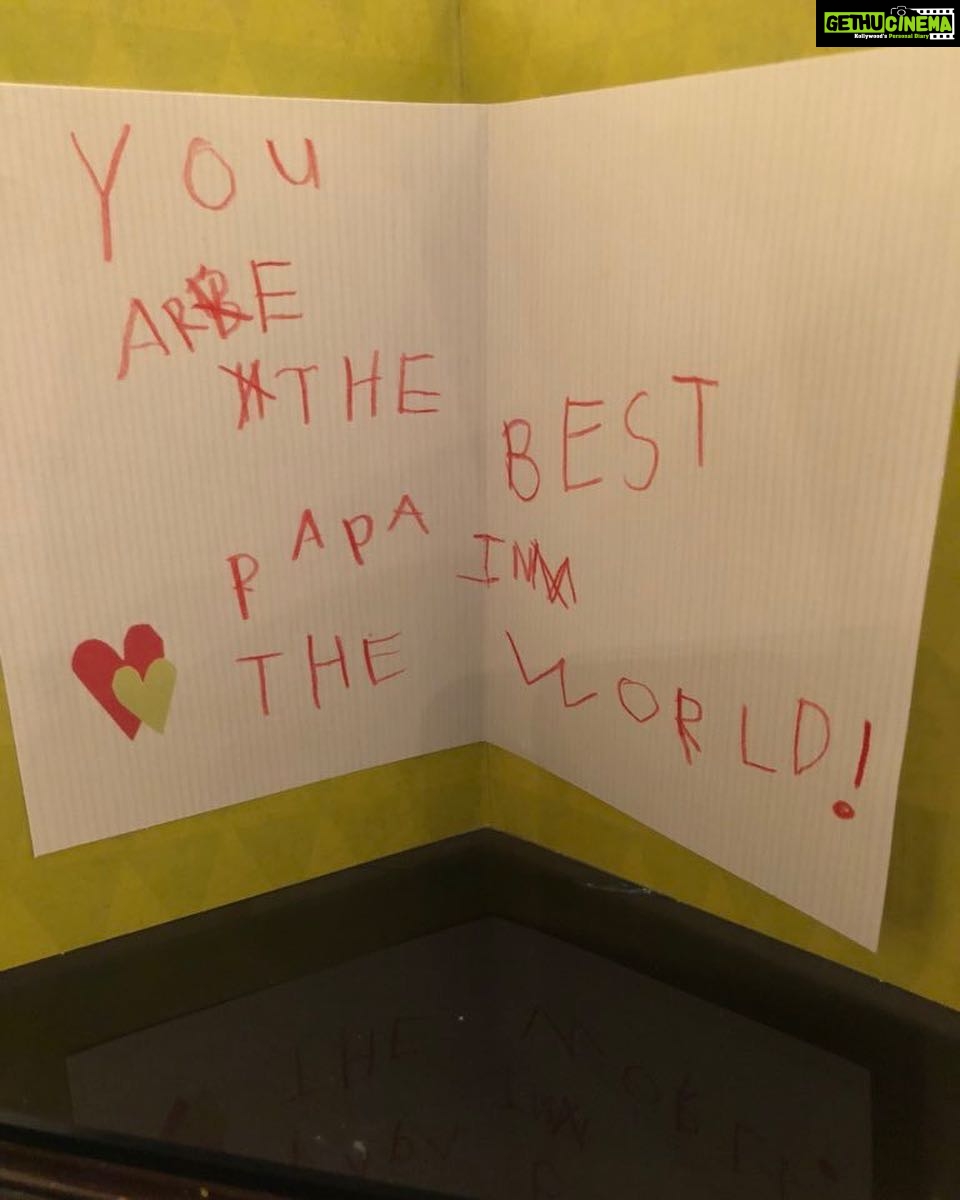 GETHU CINEMA
Kollywood's Personal Diary
YOU
ARE
THE BEST
PAPA IN
THE WORLD!